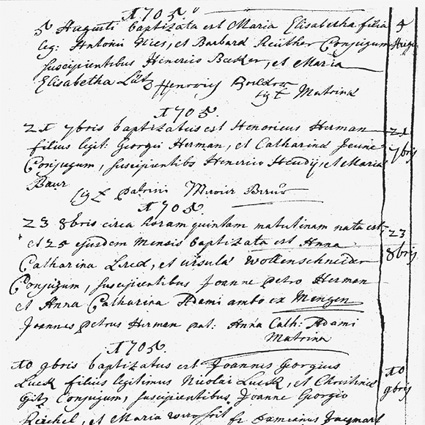 1705
5 Augusti baptizata est Maria Elisabetha filia 5
leg: Antonii Nies, et Barbara Reuther Conjugum Aug.
suscipientibus Henrico Becker, et Maria
Elisabetha Lutz Henrici
Matrina
1705.
21 7bris baptizatus est Henoricus Herman 21
filius legit: Georgii Herman, et Catharina 7bris
Conjugum, suscipientibs Henrico et Maria
Baur
Patrini
1705.
23 8bris circa horam quintam matutinam nata est, 23
et 25 ejusdem mensis baptizata est Anna 8bris
Catharina Luck, et ursula Woltenschneider
Conjugum, suscipientibus Joanne petro Herman
et Anna Catharina Adami ambo ex Mengen
Joannes petrus Herman pat: Anna Cath: Adami
Matrina
1705.
10 9bris baptizatus est Joannes Georgius 10
Luck filius legitimus Nicolai Luck, et Christina 9bris
Conjugum, suscipientibus, Joanne Georgio
Reichel, et Maria